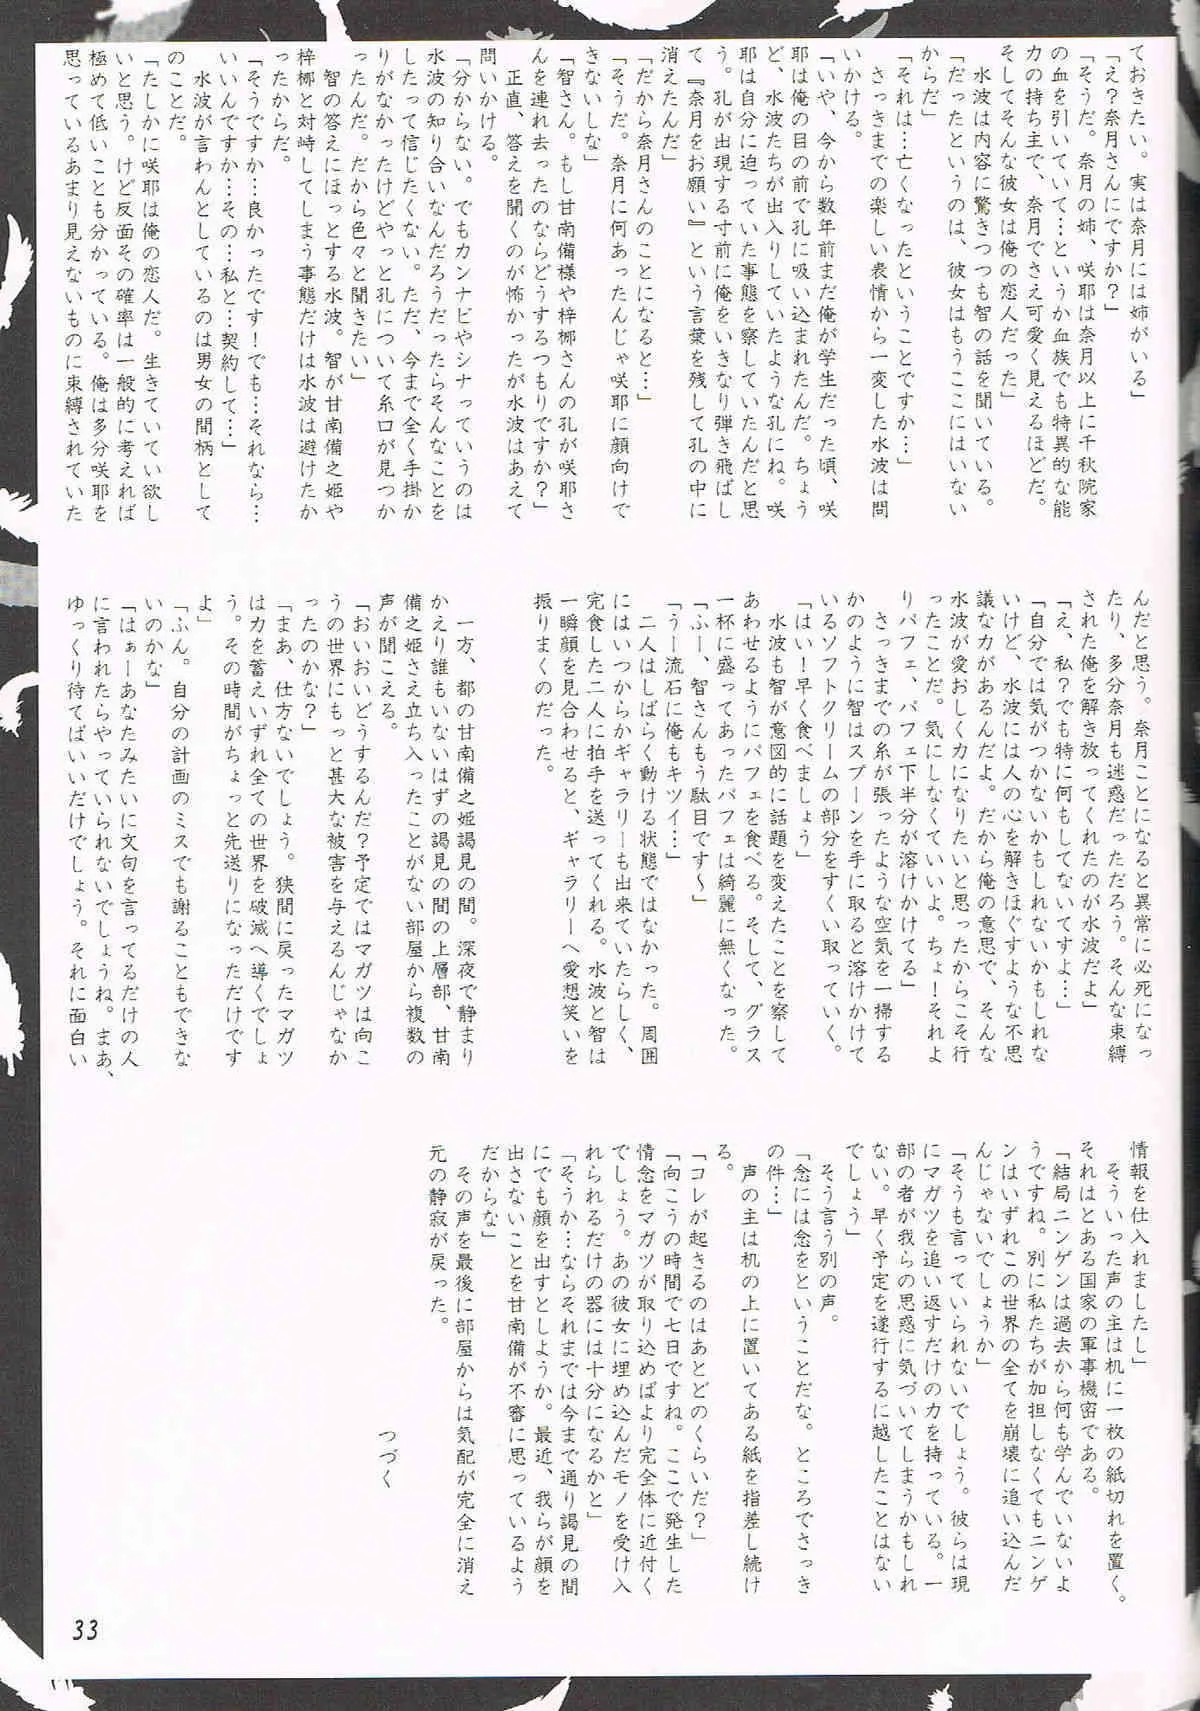 ておきたい。実は奈月には姉がいる」
「え？奈月さんにですか？」
「そうだ。奈月の姉、咲耶は奈月以上に千秋院家
の血を引いていて…というか血族でも特異的な能
力の持ち主で、奈月でさえ可愛く見えるほどだ。
そしてそんな彼女は俺の恋人だった」
　水波は内容に驚きつつも智の話を聞いている。
「だったというのは、彼女はもうここにはいない
からだ」
「それは…亡くなったということですか…」
　さっきまでの楽しい表情から一変した水波は問
いかける。
「いや、今から数年前まだ俺が学生だった頃、咲
耶は俺の目の前で孔に吸い込まれたんだ。ちょう
ど、水波たちが出入りしていたような孔にね。咲
耶は自分に迫っていた事態を察していたんだと思
う。孔が出現する寸前に俺をいきなり弾き飛ばし
て『奈月をお願い』という言葉を残して孔の中に
消えたんだ」
「だから奈月さんのことになると…」
「そうだ。奈月に何あったんじゃ咲耶に顔向けで
きないしな」
「智さん。もし甘南備様や梓梛さんの孔が咲耶さ
んを連れ去ったのならどうするつもりですか？」
　正直、答えを聞くのが怖かったが水波はあえて
問いかける。
「分からない。でもカンナビやシナっていうのは
水波の知り合いなんだろうだったらそんなことを
したって信じたくない。ただ、今まで全く手掛か
りがなかったけどやっと孔について糸口が見つか
ったんだ。だから色々と聞きたい」
　智の答えにほっとする水波。智が甘南備之姫や
梓梛と対峙してしまう事態だけは水波は避けたか
ったからだ。
「そうですか…良かったです！でも…それなら…
いいんですか…その…私と…契約して…」
　水波が言わんとしているのは男女の間柄として
のことだ。
「たしかに咲耶は俺の恋人だ。生きていて欲し
いと思う。けど反面その確率は一般的に考えれば
極めて低いことも分かっている。俺は多分咲耶を
思っているあまり見えないものに束縛されていた
んだと思う。奈月ことになると異常に必死になっ
たり、多分奈月も迷惑だっただろう。そんな束縛
された俺を解き放ってくれたのが水波だよ」
「え、私？でも特に何もしてないですよ…」
「自分では気がつかないかもしれないかもしれな
いけど、水波には人の心を解きほぐすような不思
議な力があるんだよ。だから俺の意思で、そんな
水波が愛おしく力になりたいと思ったからこそ行
ったことだ。気にしなくていいよ。ちょ！それよ
りパフェ、パフェ下半分が溶けかけてる」
　さっきまでの糸が張ったような空気を一掃する
かのように智はスプーンを手に取ると溶けかけて
いるソフトクリームの部分をすくい取っていく。
「はい！早く食べましょう」
　水波も智が意図的に話題を変えたことを察して
あわせるようにパフェを食べる。そして、グラス
一杯に盛ってあったパフェは綺麗に無くなった。
「ふー、智さんもう駄目です〜」
「うー流石に俺もキツイ…」
　二人はしばらく動ける状態ではなかった。周囲
にはいつからかギャラリーも出来ていたらしく、
完食した二人に拍手を送ってくれる。水波と智は
一瞬顔を見合わせると、ギャラリーへ愛想笑いを
振りまくのだった。
　一方、都の甘南備之姫謁見の間。深夜で静まり
かえり誰もいないはずの謁見の間の上層部、甘南
備之姫さえ立ち入ったことがない部屋から複数の
声が聞こえる。
「おいおいどうするんだ？予定ではマガツは向こ
うの世界にもっと甚大な被害を与えるんじゃなか
ったのかな？」
「まあ、仕方ないでしょう。狭間に戻ったマガツ
は力を蓄えいずれ全ての世界を破滅へ導くでしょ
う。その時間がちょっと先送りになっただけです
よ」
「ふん。自分の計画のミスでも謝ることもできな
いのかな」
「はぁーあなたみたいに文句を言ってるだけの人
に言われたらやっていられないでしょうね。まあ、
ゆっくり待てばいいだけでしょう。それに面白い
情報を仕入れましたし」
　そういった声の主は机に一枚の紙切れを置く。
それはとある国家の軍事機密である。
「結局ニンゲンは過去から何も学んでいないよ
うですね。別に私たちが加担しなくてもニンゲ
ンはいずれこの世界の全てを崩壊に追い込んだ
んじゃないでしょうか」
「そうも言っていられないでしょう。彼らは現
にマガツを追い返すだけの力を持っている。一
部の者が我らの思惑に気づいてしまうかもしれ
ない。早く予定を遂行するに越したことはない
でしょう」
　そう言う別の声。
「念には念をということだな。ところでさっき
の件…」
　声の主は机の上に置いてある紙を指差し続け
る。
「コレが起きるのはあとどのくらいだ？」
「向こうの時間で七日ですね。ここで発生した
情念をマガツが取り込めばより完全体に近付く
でしょう。あの彼女に埋め込んだモノを受け入
れられるだけの器には十分になるかと」
「そうか…ならそれまでは今まで通り謁見の間
にでも顔を出すとしようか。最近、我らが顔を
出さないことを甘南備が不審に思っているよう
だからな」
　その声を最後に部屋からは気配が完全に消え
元の静寂が戻った。
つづく
33